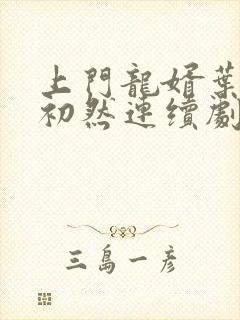 上門龍婿葉
初然連續劇
三島一彦